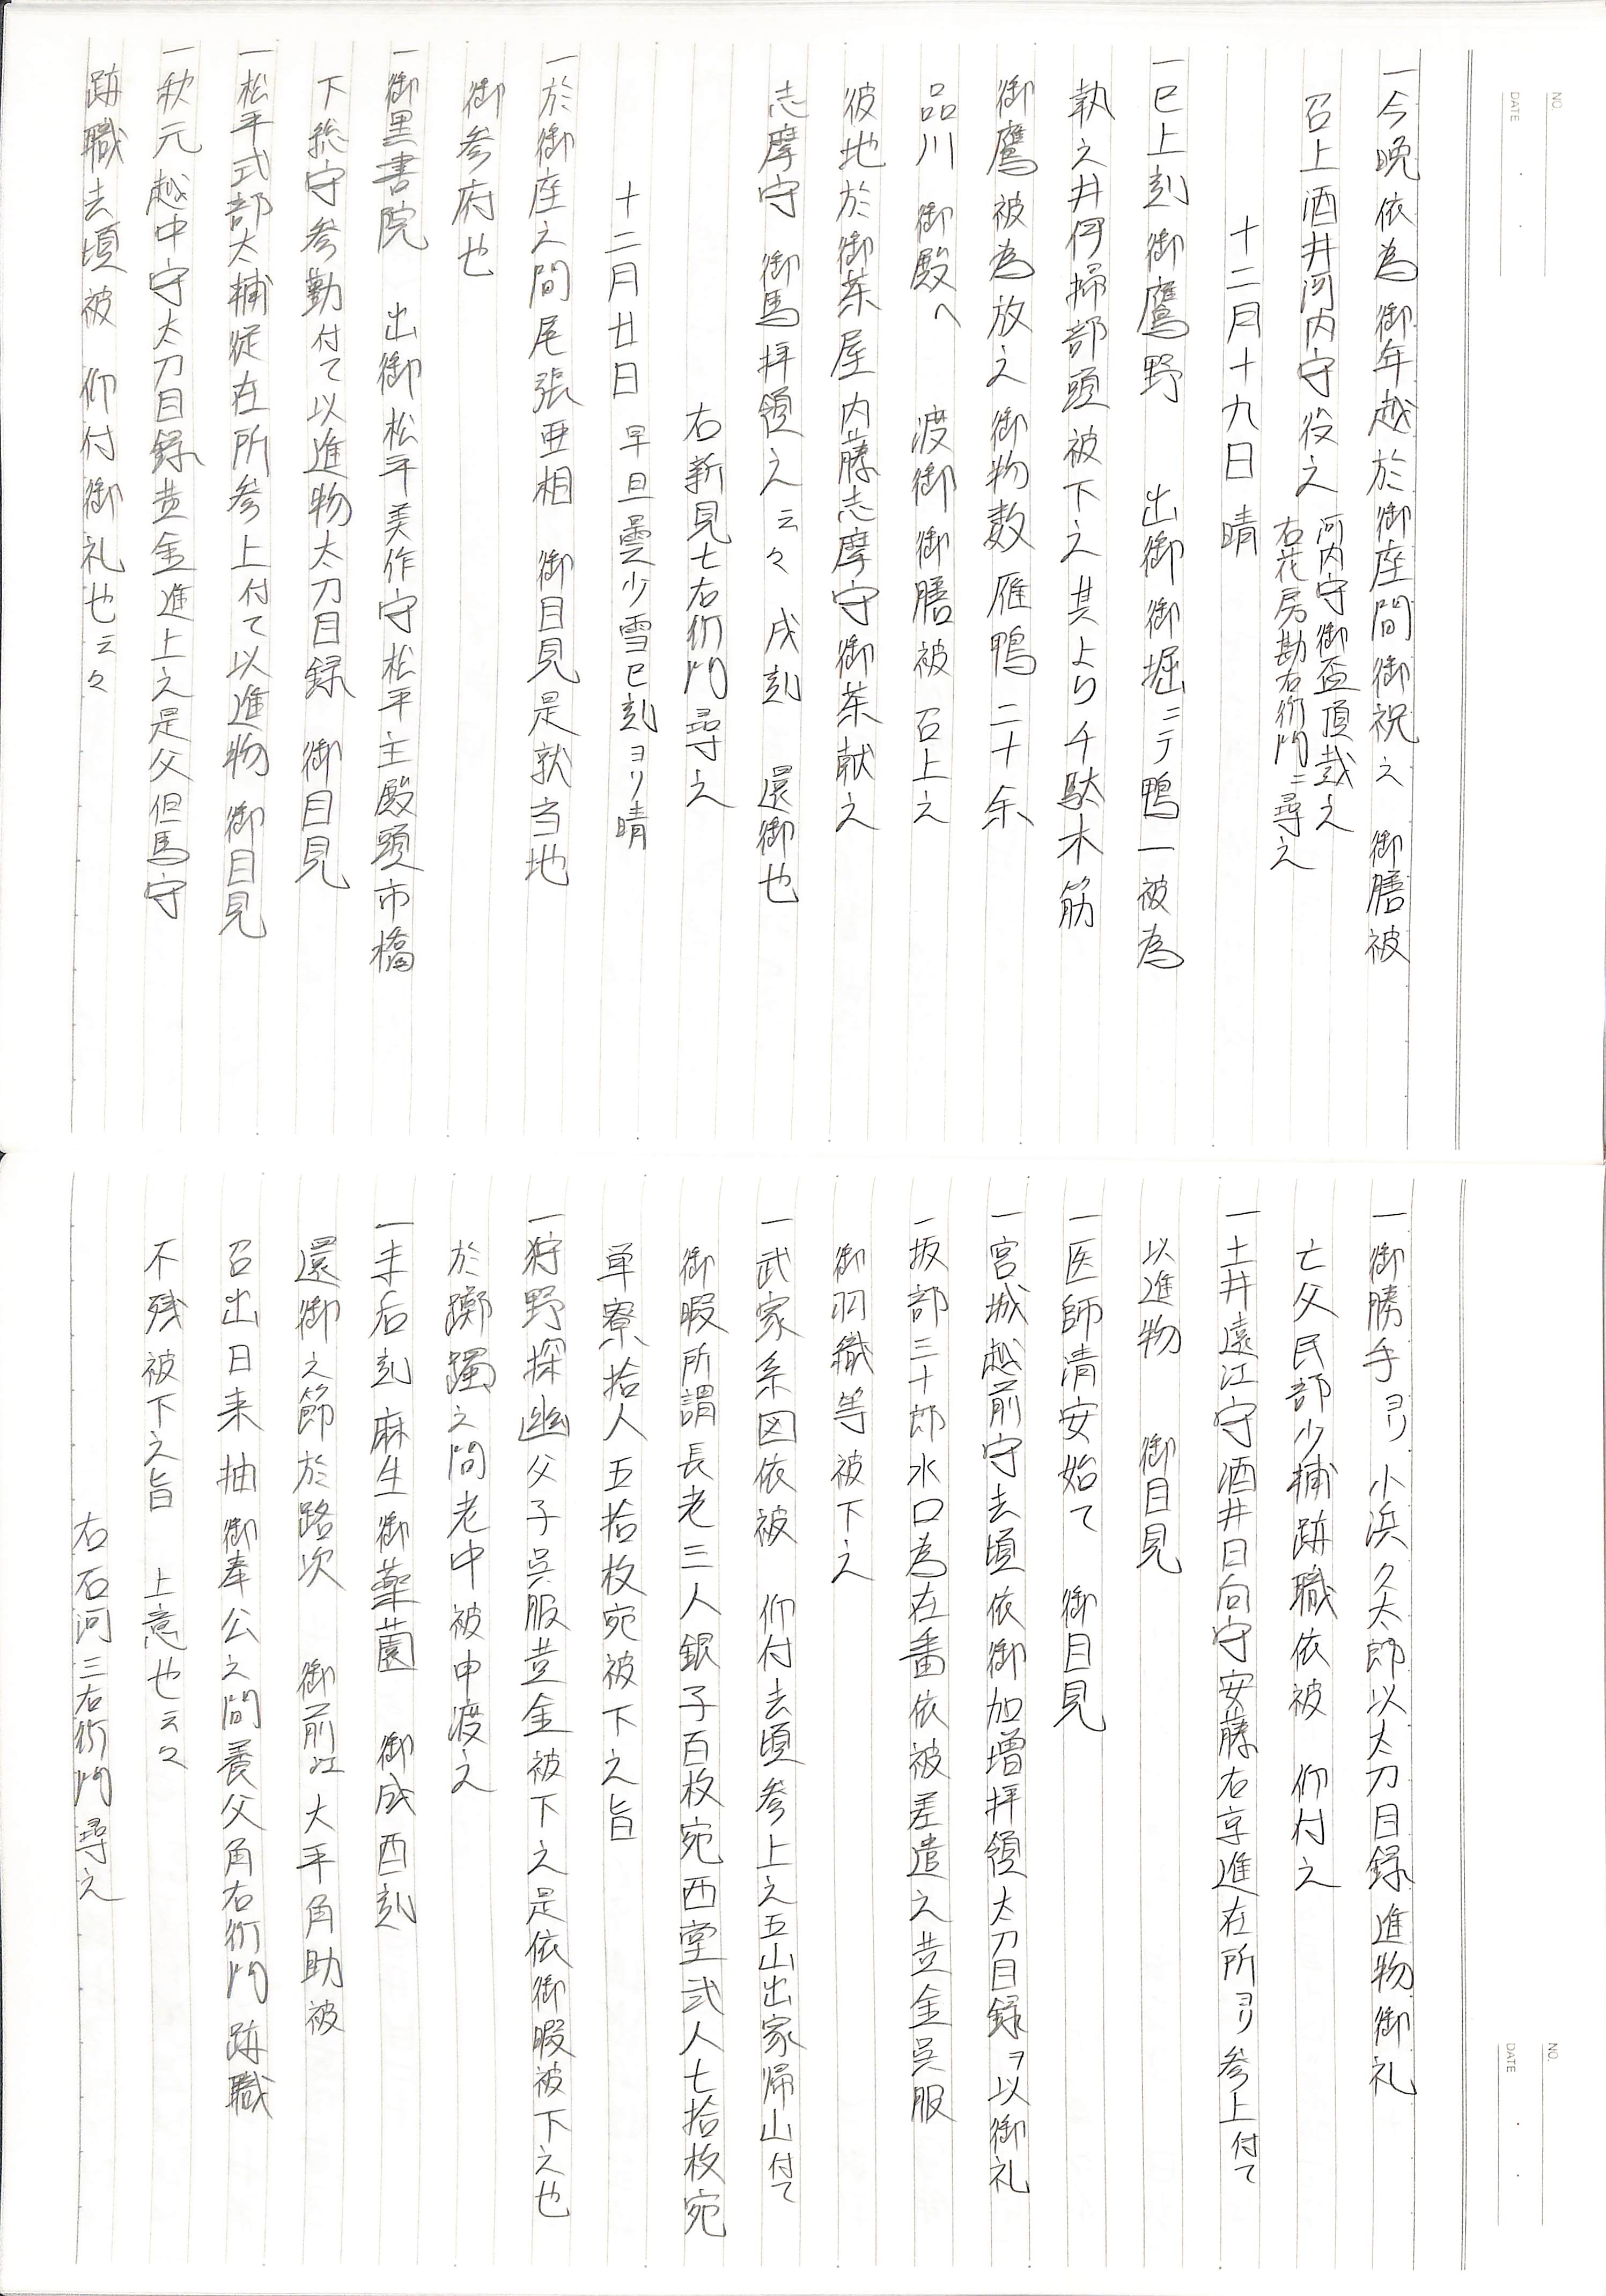 一今晩依為 御年越於御座間御祝之 御膳被
召上酒井河内守役之 河内守御盃頂戴之
右花房勘右衛門ニ尋之
十二月十九日 晴
一巳上刻 御鷹野 出御 御堀ニテ鴨一被為
執之井伊掃部頭被下之其より千駄木筋
御鷹被為放之 御物数雁鴨二十余
品川 御殿へ 渡御 御膳被 召上之
彼地於御茶屋内藤志摩守御茶献之
志摩守 御馬拝領之云々 戌刻 還御也
右新見七右衛門尋之
十二月廿日 早旦曇少雪巳刻ヨリ晴
一於御座之間尾張亜相 御目見是就当地
御参府也
一御黒書院 出御 松平美作守松平主殿頭市橋
下総守参勤付て以進物太刀目録 御目見
一松平式部太輔従在所参上付て以進物 御目見
一秋元越中守太刀目録黄金進上之是父但馬守
跡職去頃被 仰付御礼也云々
一御勝手ヨリ小浜久太郎以太刀目録進物御礼
亡父民部少輔跡職依被 仰付之
一土井遠江守酒井日向守安藤右京進在所ヨリ参上付て
以進物 御目見
一医師清安始て 御目見
一宮城越前守去頃依御加増拝領太刀目録ヲ以御礼
一坂部三十郎水口為在番依被差遣之黄金呉服
御羽織等被下之
一武家系図依被 仰付去頃参上之五山出家帰山付て
御暇所謂長老三人銀子百枚宛西堂弐人七拾枚宛
単寮拾人五拾枚宛被下之旨
一狩野探幽父子呉服黄金被下之是依御暇被下之也
於躑躅之間老中被申渡之
一未后刻麻生御薬園 御成酉刻
還御之節於路次 御前江大平角助被
召出日来抽御奉公之間養父角右衛門跡職
不残被下之旨 上意也云々
右石河三右衛門尋之
NO.
DATE
NO.
DATE